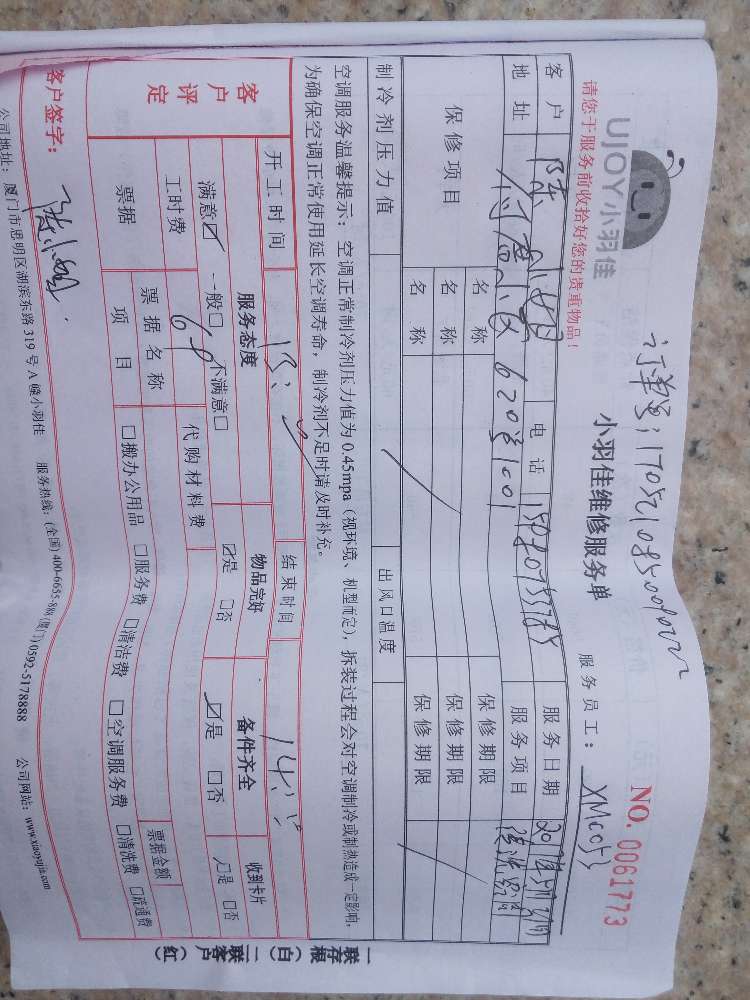 UJOY小羽佳
订单号:
NO. 0061773
小羽佳维修服务单
请您于服务前收拾好您的贵重物品!
服务员工: XMC055
客户 陈小姐 电话 服务日期
地址 620号1001 服务项目
保修项目 名称 保修期限
名称 保修期限
名称 保修期限
制冷剂压力值 出风口温度
空调服务温馨提示:空调正常制冷剂压力值为0.45mpa(视环境、机型而定),拆装过程会对空调制冷或制热造成一定影响,
为确保空调正常使用延长空调寿命,制冷剂不足时请及时补充。
客户评定 开工时间 13: 结束时间 14:
服务态度 物品完好 备件齐全 收到卡片
满意☑ 一般□ 不满意□ ☑是 □否 ☑是 □否 ☑是 □否
工时费 69 代购材料费
票据 票据名称 票据金额
项目 □搬办公用品 □服务费 □清洁费 □空调服务费 □清洗费 □疏通费
客户签字:
公司地址:厦门市思明区湖滨东路319号A幢小羽佳 服务热线:(全国)400-6655-88(厦门)0592-5178888 公司网站:www.xiaoyujia.com
一联存根(白) 二联客户(红)